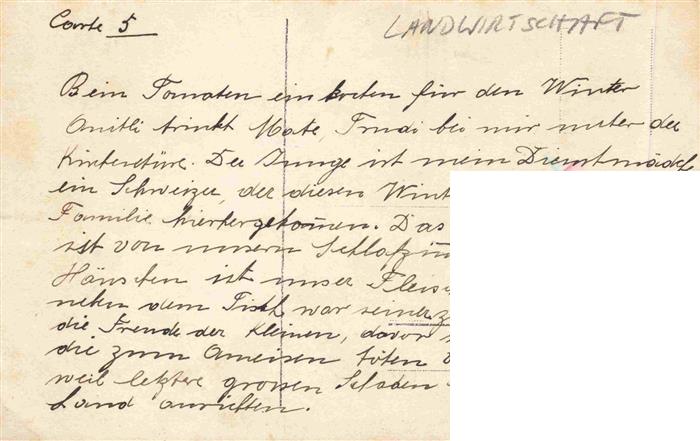 Carte 5
LANDWIRTSCHAFT
Beim Tomaten einkochen für den Winter
Anitli trinkt Mate, Trudi bei mir unter der
Hintertüre. Der Junge ist mein Dienstmädch
ein Schweizer, der diesen Wint
Familie hierhergekommen. Das
ist von unsern Schlafzim
Häuschen ist unser Fleisc
neben dem Tisch war seinerz
die Freude der Kleinen, davor
die zum Ameisen töten
weil letztere grossen Schaden
Land anrichten.